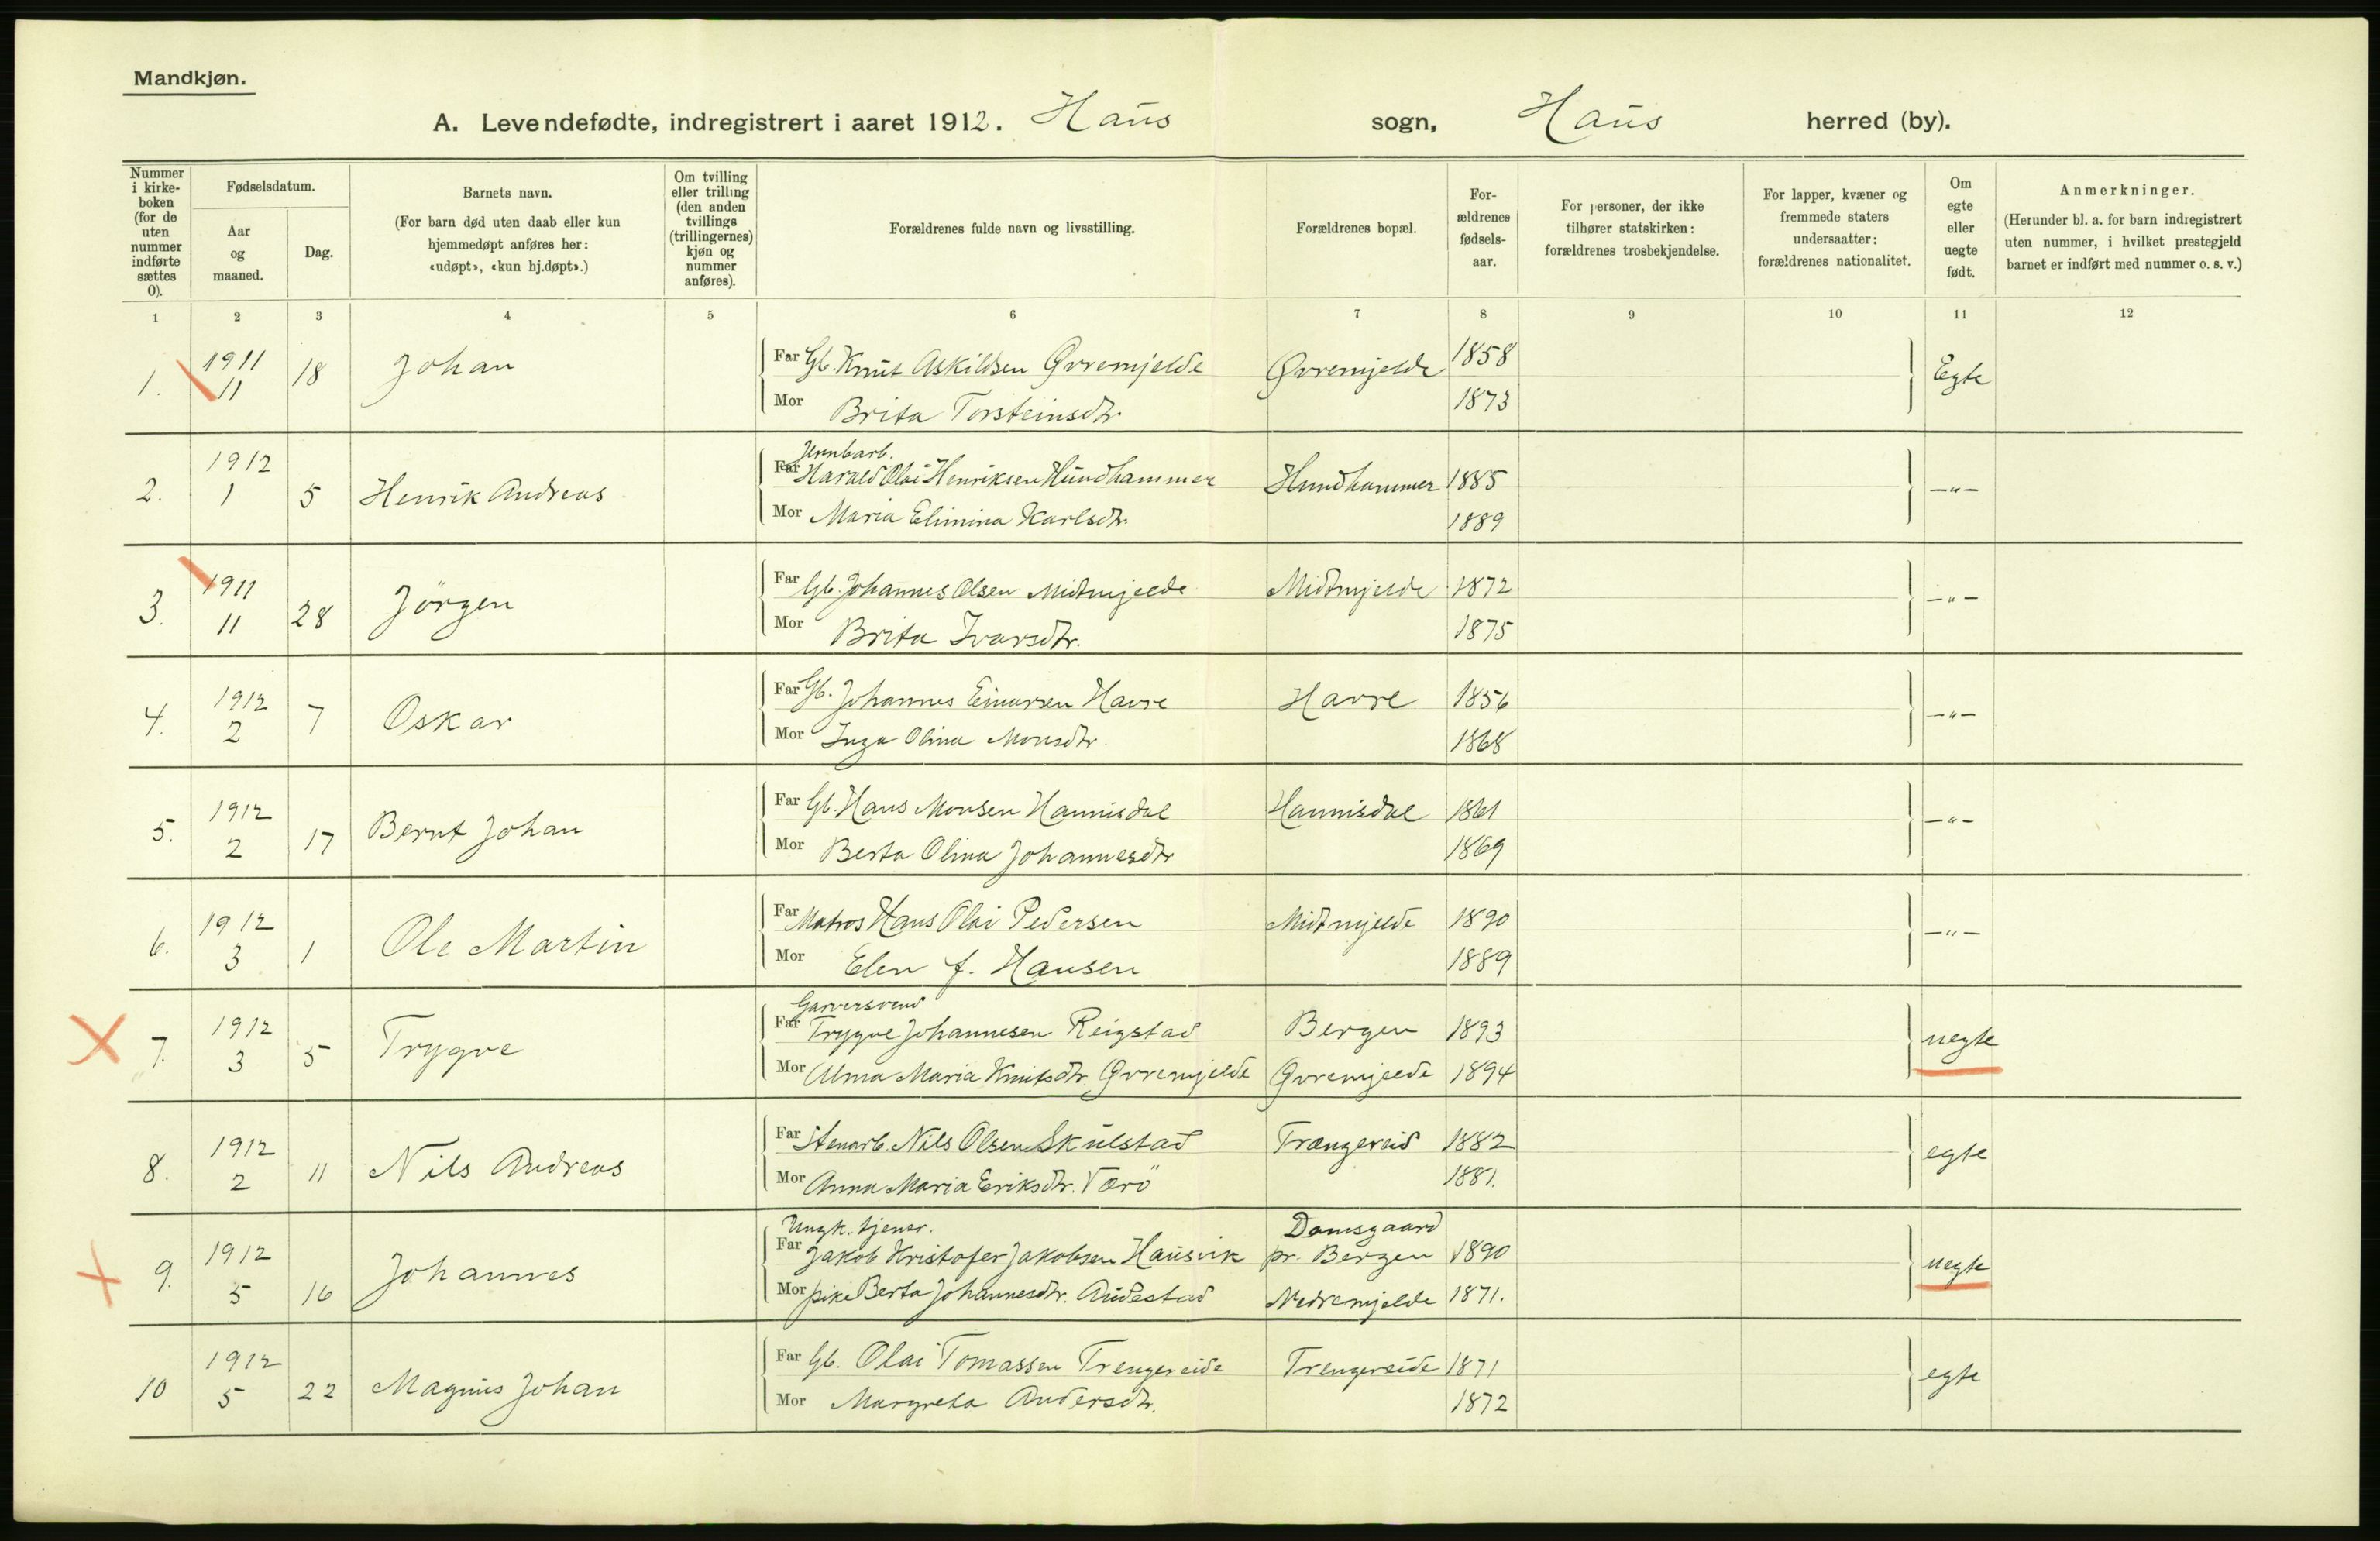 Mandkjøn.
A. Levendefødte, indregistrert i aaret 1912. Haus sogn, Haus herred (by).
Nummer i kirke-boken (for de uten nummer indførte sættes 0).
Fødselsdatum.
Aar og maaned.
Dag.
Barnets navn.
(For barn død uten daab eller kun hjemmedøpt anføres her: «udøpt», «kun hj.døpt».)
Om tvilling eller trilling (den anden tvillings (trillingernes) kjøn og nummer anføres).
Forældrenes fulde navn og livsstilling.
Forældrenes bopæl.
For-ældrenes fødsels-aar.
For personer, der ikke tilhører statskirken: forældrenes trosbekjendelse.
For lapper, kvæner og fremmede staters undersaatter: forældrenes nationalitet.
Om egte eller uegte født.
Anmerkninger.
(Herunder bl. a. for barn indregistrert uten nummer, i hvilket prestegjeld barnet er indført med nummer o. s. v.)
1 2 3 4 5 6 7 8 9 10 11 12
1. 1911 11 18 Johan Far Gb. Knut Askildsen Øvremjelde Øvremjelde 1858 Egte
Mor Brita Torsteinsdtr. 1873
Jernbarb.
2. 1912 1 5 Henrik Andreas Far Harald Olai Henriksen Hundhammer Hundhammer 1885 —"—
Mor Maria Elimina Karlsdtr. 1889
3. 1911 11 28 Jörgen Far Gb. Johannes Olsen Midtmjelde Midtmjelde 1872 —"—
Mor Brita Ivarsdtr. 1875
4. 1912 2 7 Oskar Far Gb. Johannes Einarsen Havre Havre 1856 —"—
Mor Inga Olina Monsdtr. 1868
5. 1912 2 17 Bernt Johan Far Gb. Hans Monsen Hannisdal Hannisdal 1861 —"—
Mor Berta Olina Johannesdtr 1869
6. 1912 3 1 Ole Martin Far Matros Hans Olai Pedersen Midtmjelde 1890 —"—
Mor Elen f. Hansen 1889
Garversvend
7. 1912 3 5 Trygve Far Trygve Johannesen Reigstad Bergen 1893 uegte
Mor Alma Maria Knutsdtr. Øvremjelde Øvremjelde 1894
8. 1912 2 11 Nils Andreas Far Stenarb. Nils Olsen Skulstad Trængereid 1882 egte
Mor Anna Maria Eriksdtr. Værö 1881.
Ungk. tjener. Damsgaard
9. 1912 5 16 Johannes Far Jakob Kristofer Jakobsen Hausvik pr. Bergen 1890 uegte
Mor pike Berta Johannesdtr. Audestad Nedremjelde 1871.
10 1912 5 22 Magnus Johan Far Gb. Olai Tomassen Trengereide Trengereide 1871 egte
Mor Margreta Andersdtr. 1872